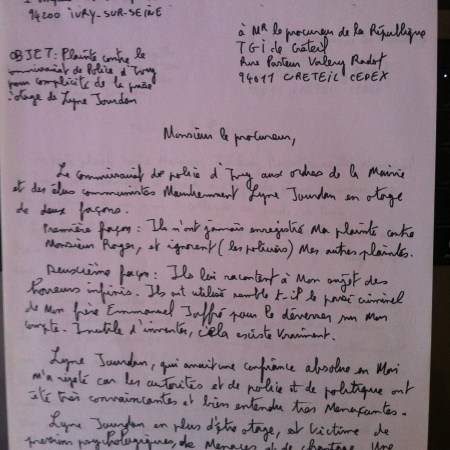 94200 IVRY-SUR-SEINE
à MR le procureur de la République
TGI de Créteil
Rue Pasteur Valery Radot
94011 CRETEIL CEDEX
OBJET: Plainte contre le
commissariat de Police d'Ivry
pour complicité de la prise
d'otage de Lyne Jourdan
Monsieur le procureur,
Le commissariat de police d'Ivry aux ordres de la Mairie
et des élus communistes Maintiennent Lyne Jourdan en otage
de deux façons.
Première façon: Ils n'ont jamais enregistré Ma plainte contre
Monsieur Roger, et ignorent (les policiers) Mes autres plaintes.
Deuxième façon: Ils lui racontent à Mon sujet des
horreurs infinis. Ils ont utilisé semble t-il le passé criminel
de Mon frère Emmanuel Joffré pour le déverser sur Mon
compte. Inutile d'inventer, cela existe vraiment.
Lyne Jourdan, qui avait une confiance absolue en Moi
m'a rejeté car les autorités et de police et de politique ont
été très convaincantes et bien entendu très Menaçantes.
Lyne Jourdan en plus d'être otage, est victime de
pression psychologiques, de Menaces et de chantage. Une